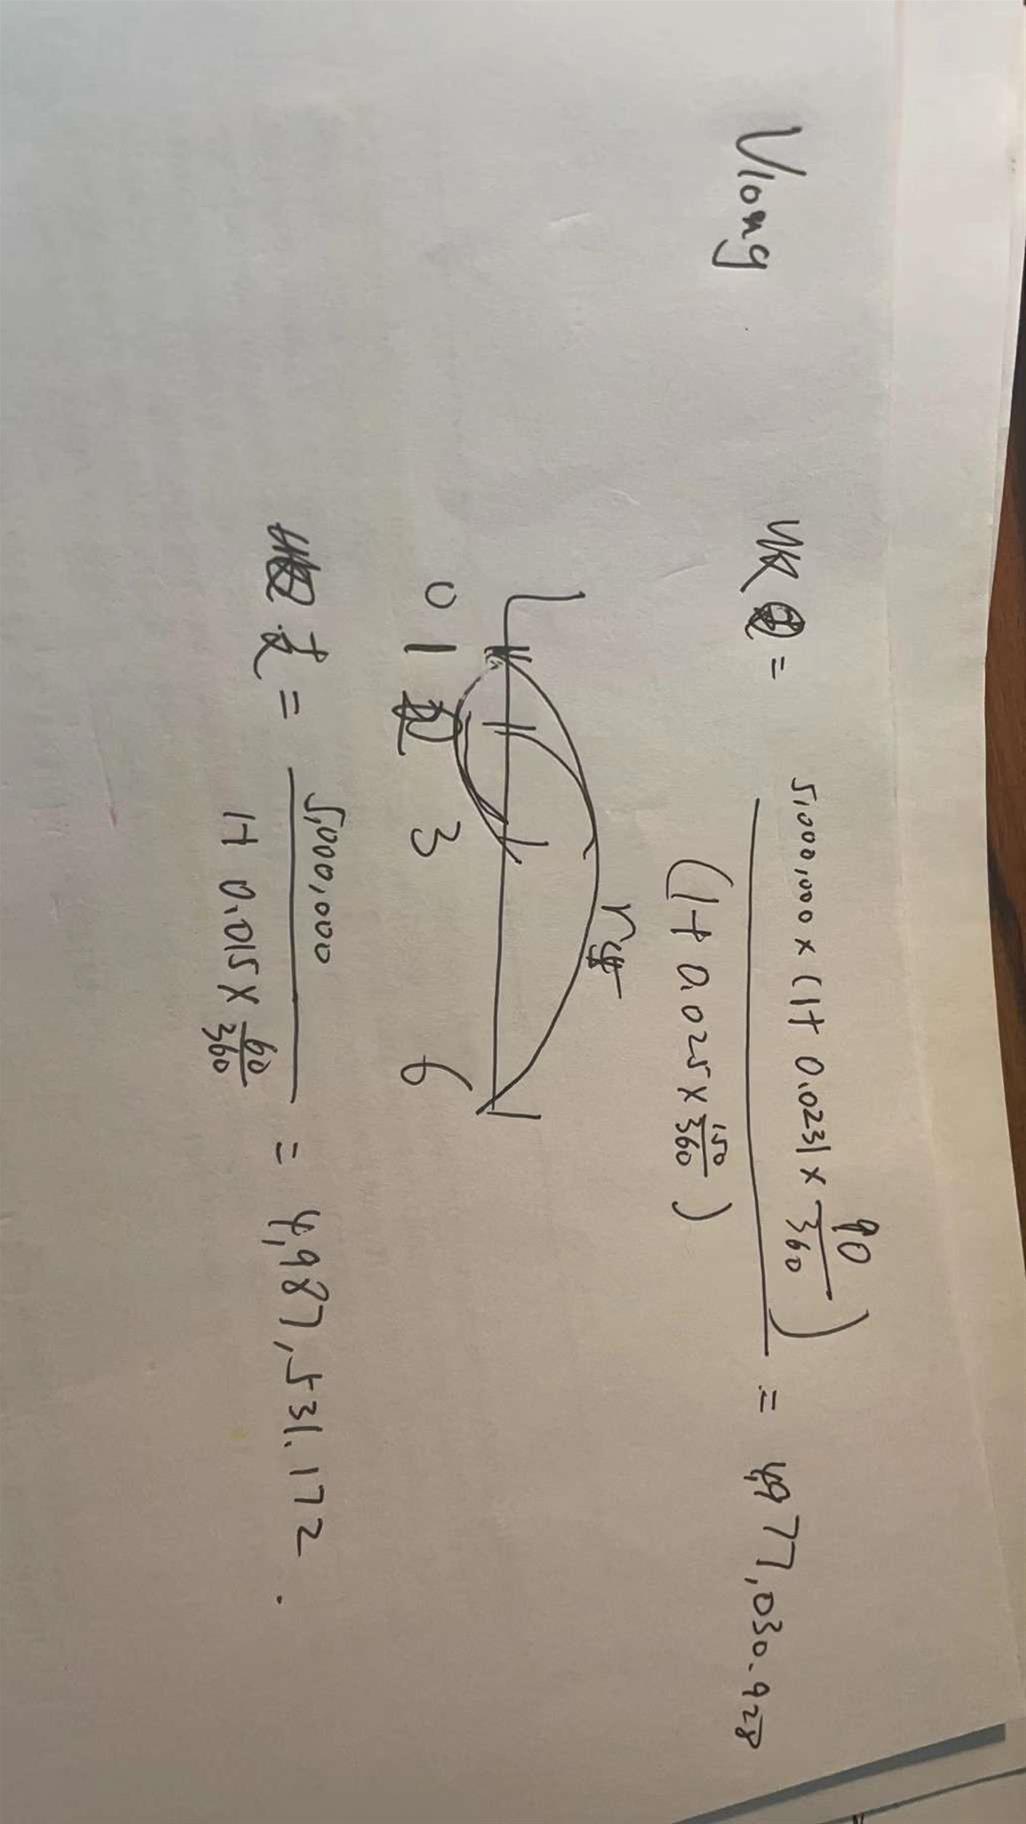 V long
收 = 5,000,000 × (1+ 0.0231 × 90/360) / (1+ 0.025 × 150/360) = 4,977,030.928
r
0 1 3 6
支 = 5,000,000 / 1+ 0.015 × 60/360 = 4,987,531.172.